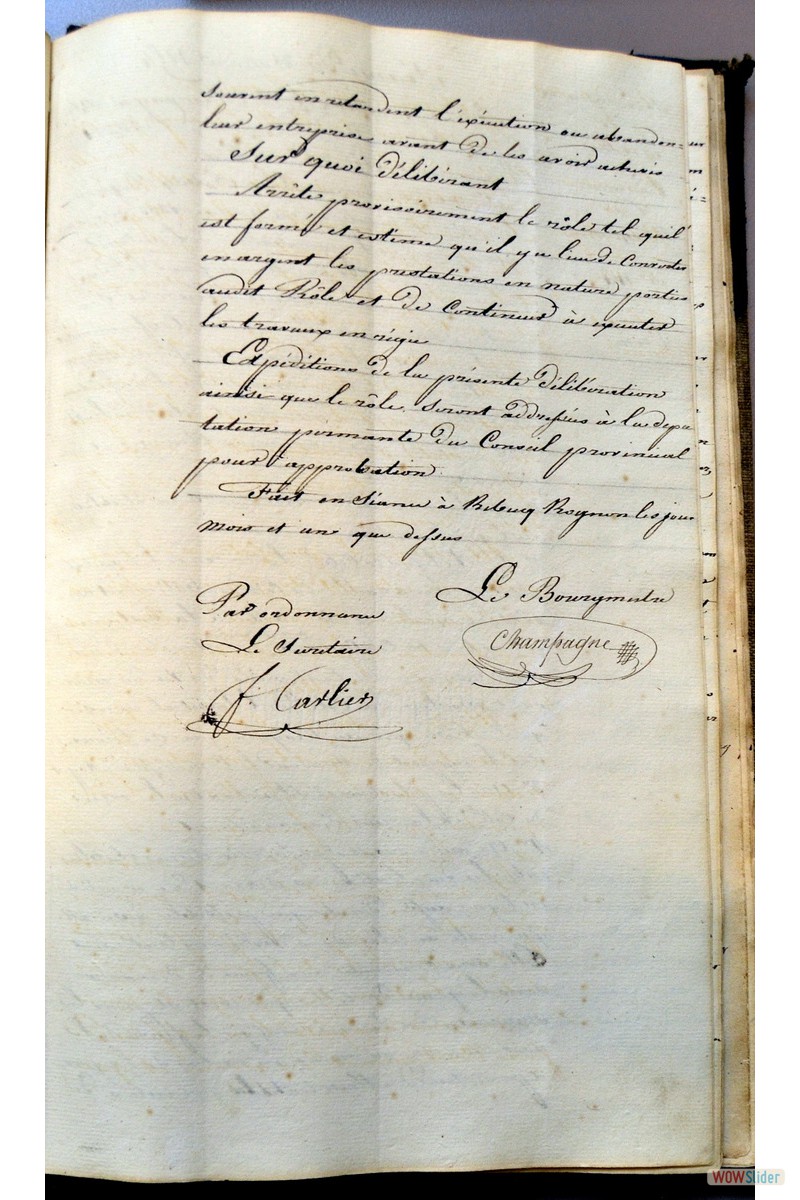 souvent en retardent l'exécution ou abandon=
leur entreprise avant de les avoir achevés
Sur quoi délibérant
Arrête provisoirement le rôle tel qu'il
est formé et estime qu'il y a lieu de Convertir
en argent les prestations en nature portées
audit Rôle et de Continuer à executer
les travaux en régie
Expéditions de la présente délibération
ainsi que le rôle seront addressées à la depu
tation permante du Conseil provincial
pour approbation
Fait en Séance à Rebecq Rognon les jour
mois et an que dessus
Le Bourgmestre
Par ordonnance
Le Secrétaire
Champagne
f. Carlier
WOWSlider